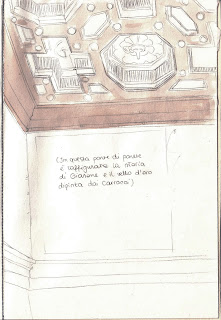 (In questa parte di parete
è raffigurata la storia
di Giasone e il vello d'oro
dipinta dai Carracci)